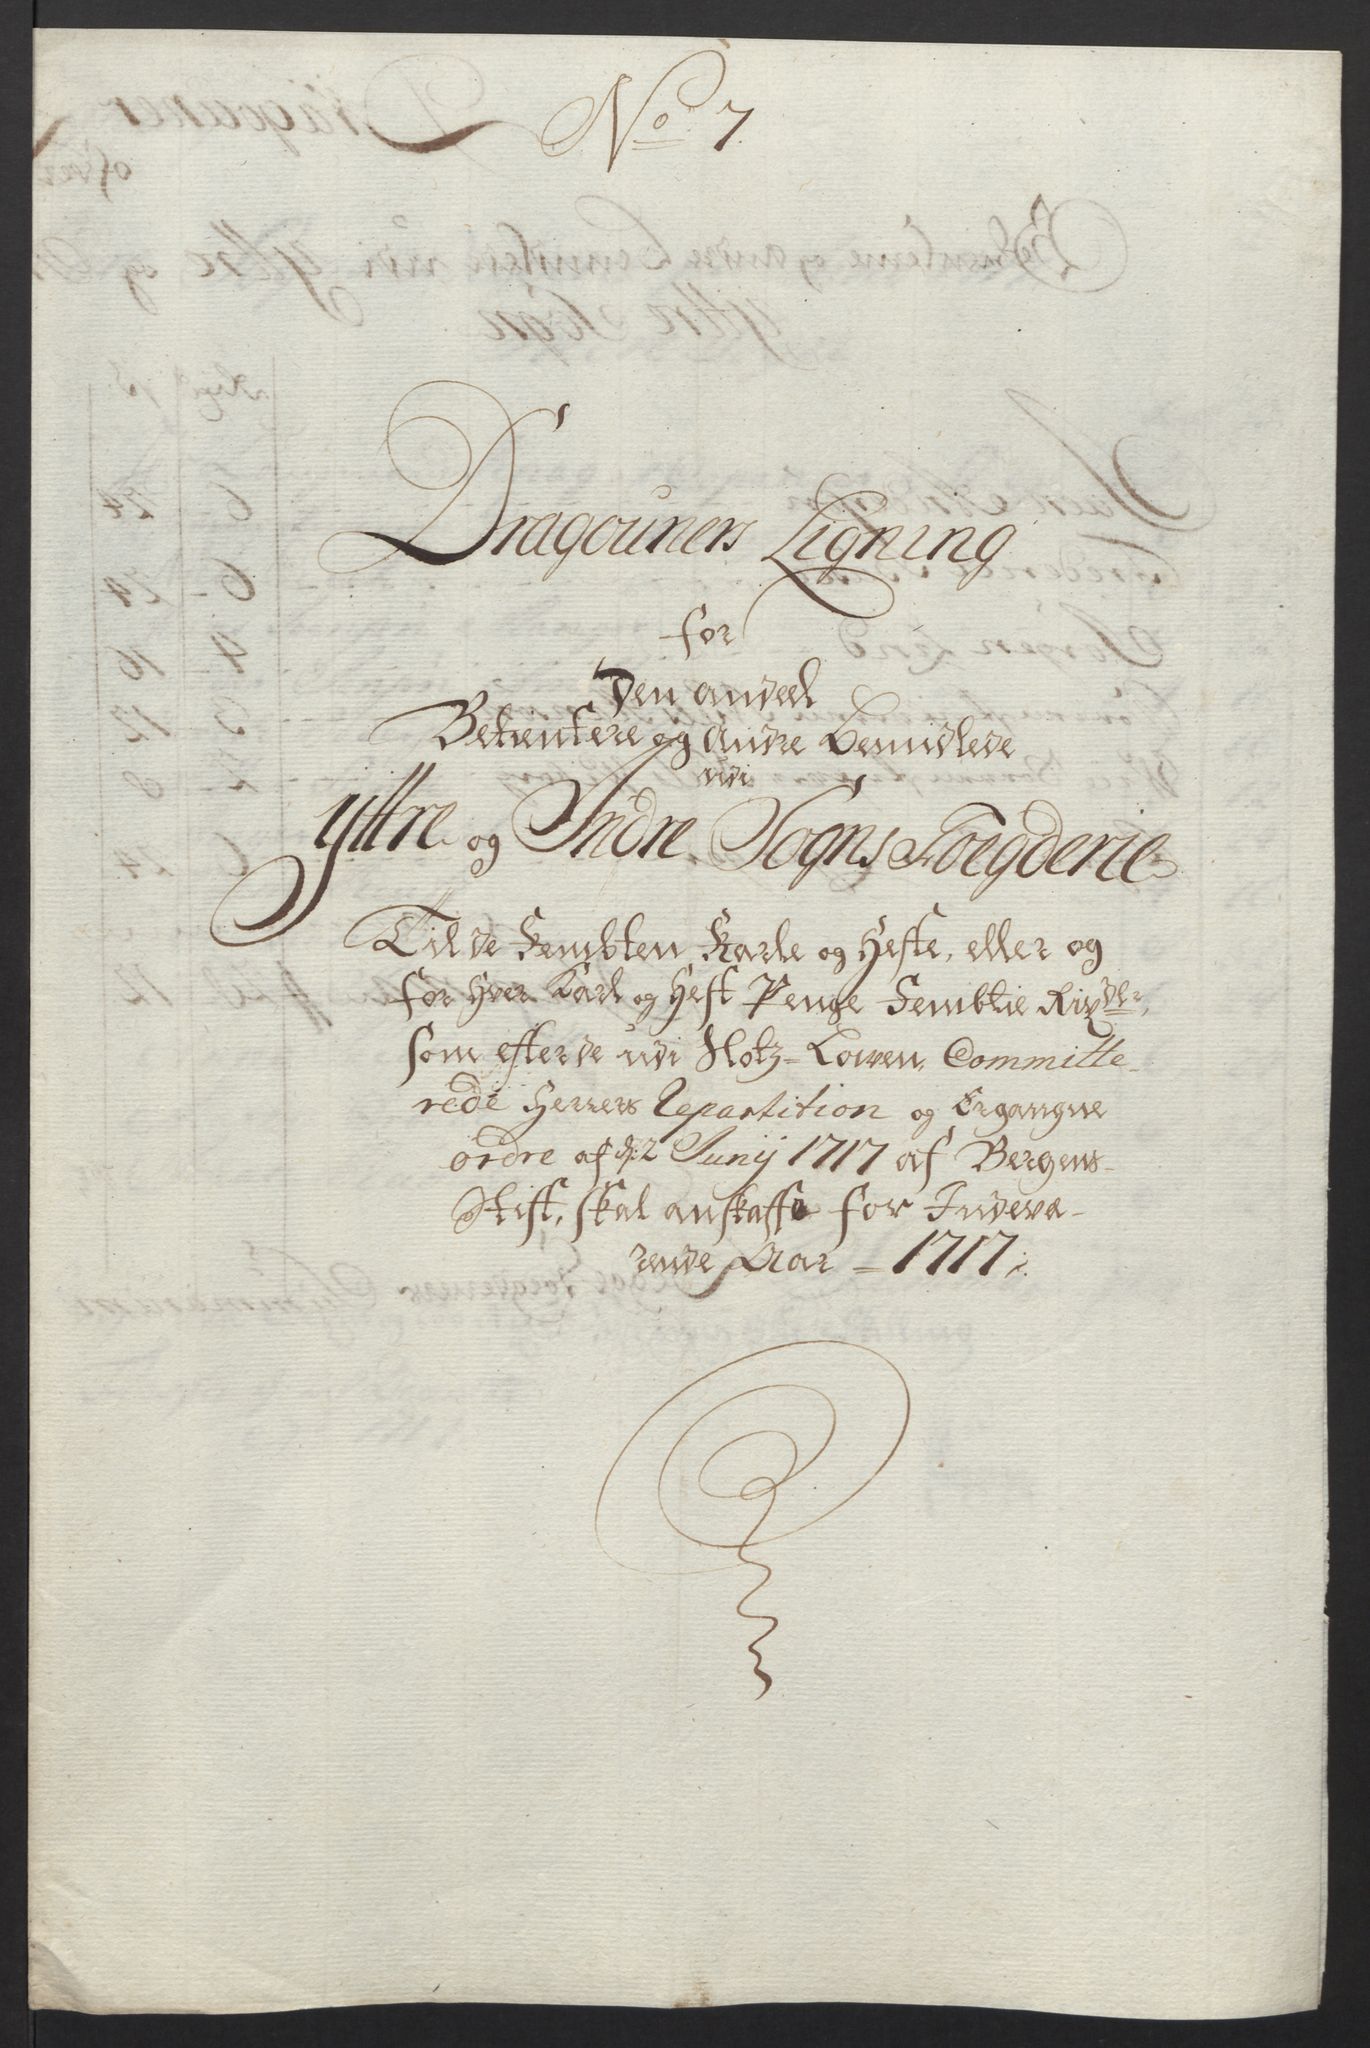 No 7
Dragouners Ligning
for
den andeel
Betientere og Andre Bemidlede
udi
Yttre og Indre Sogns Foegderie
Til de Fembten Karle og Heste, eller og
for hver Karl og Hest Penge Fembtie Rixdlr,
som efter de udi Slotz-Lowen Committe-
rede Herrers Repartition og Ergangne
ordre af d: 2 Junij 1717 af Bergens-
Stift, skal anskaffe for Indevæ-
rende Aar = 1717